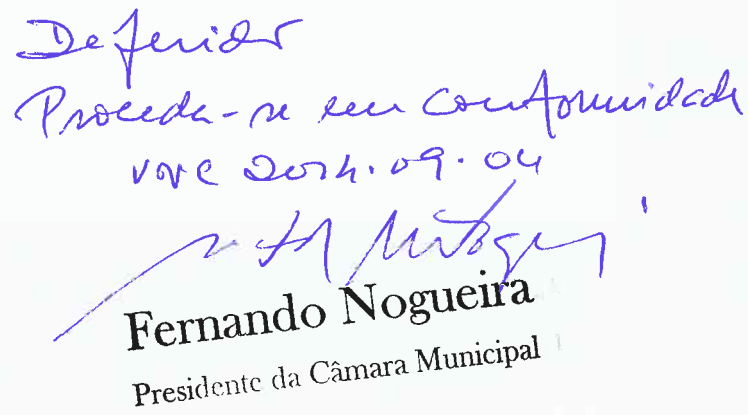 Deferido
Proceda-se em conformidade
VNC 2014.09.04
Fernando Nogueira
Presidente da Câmara Municipal